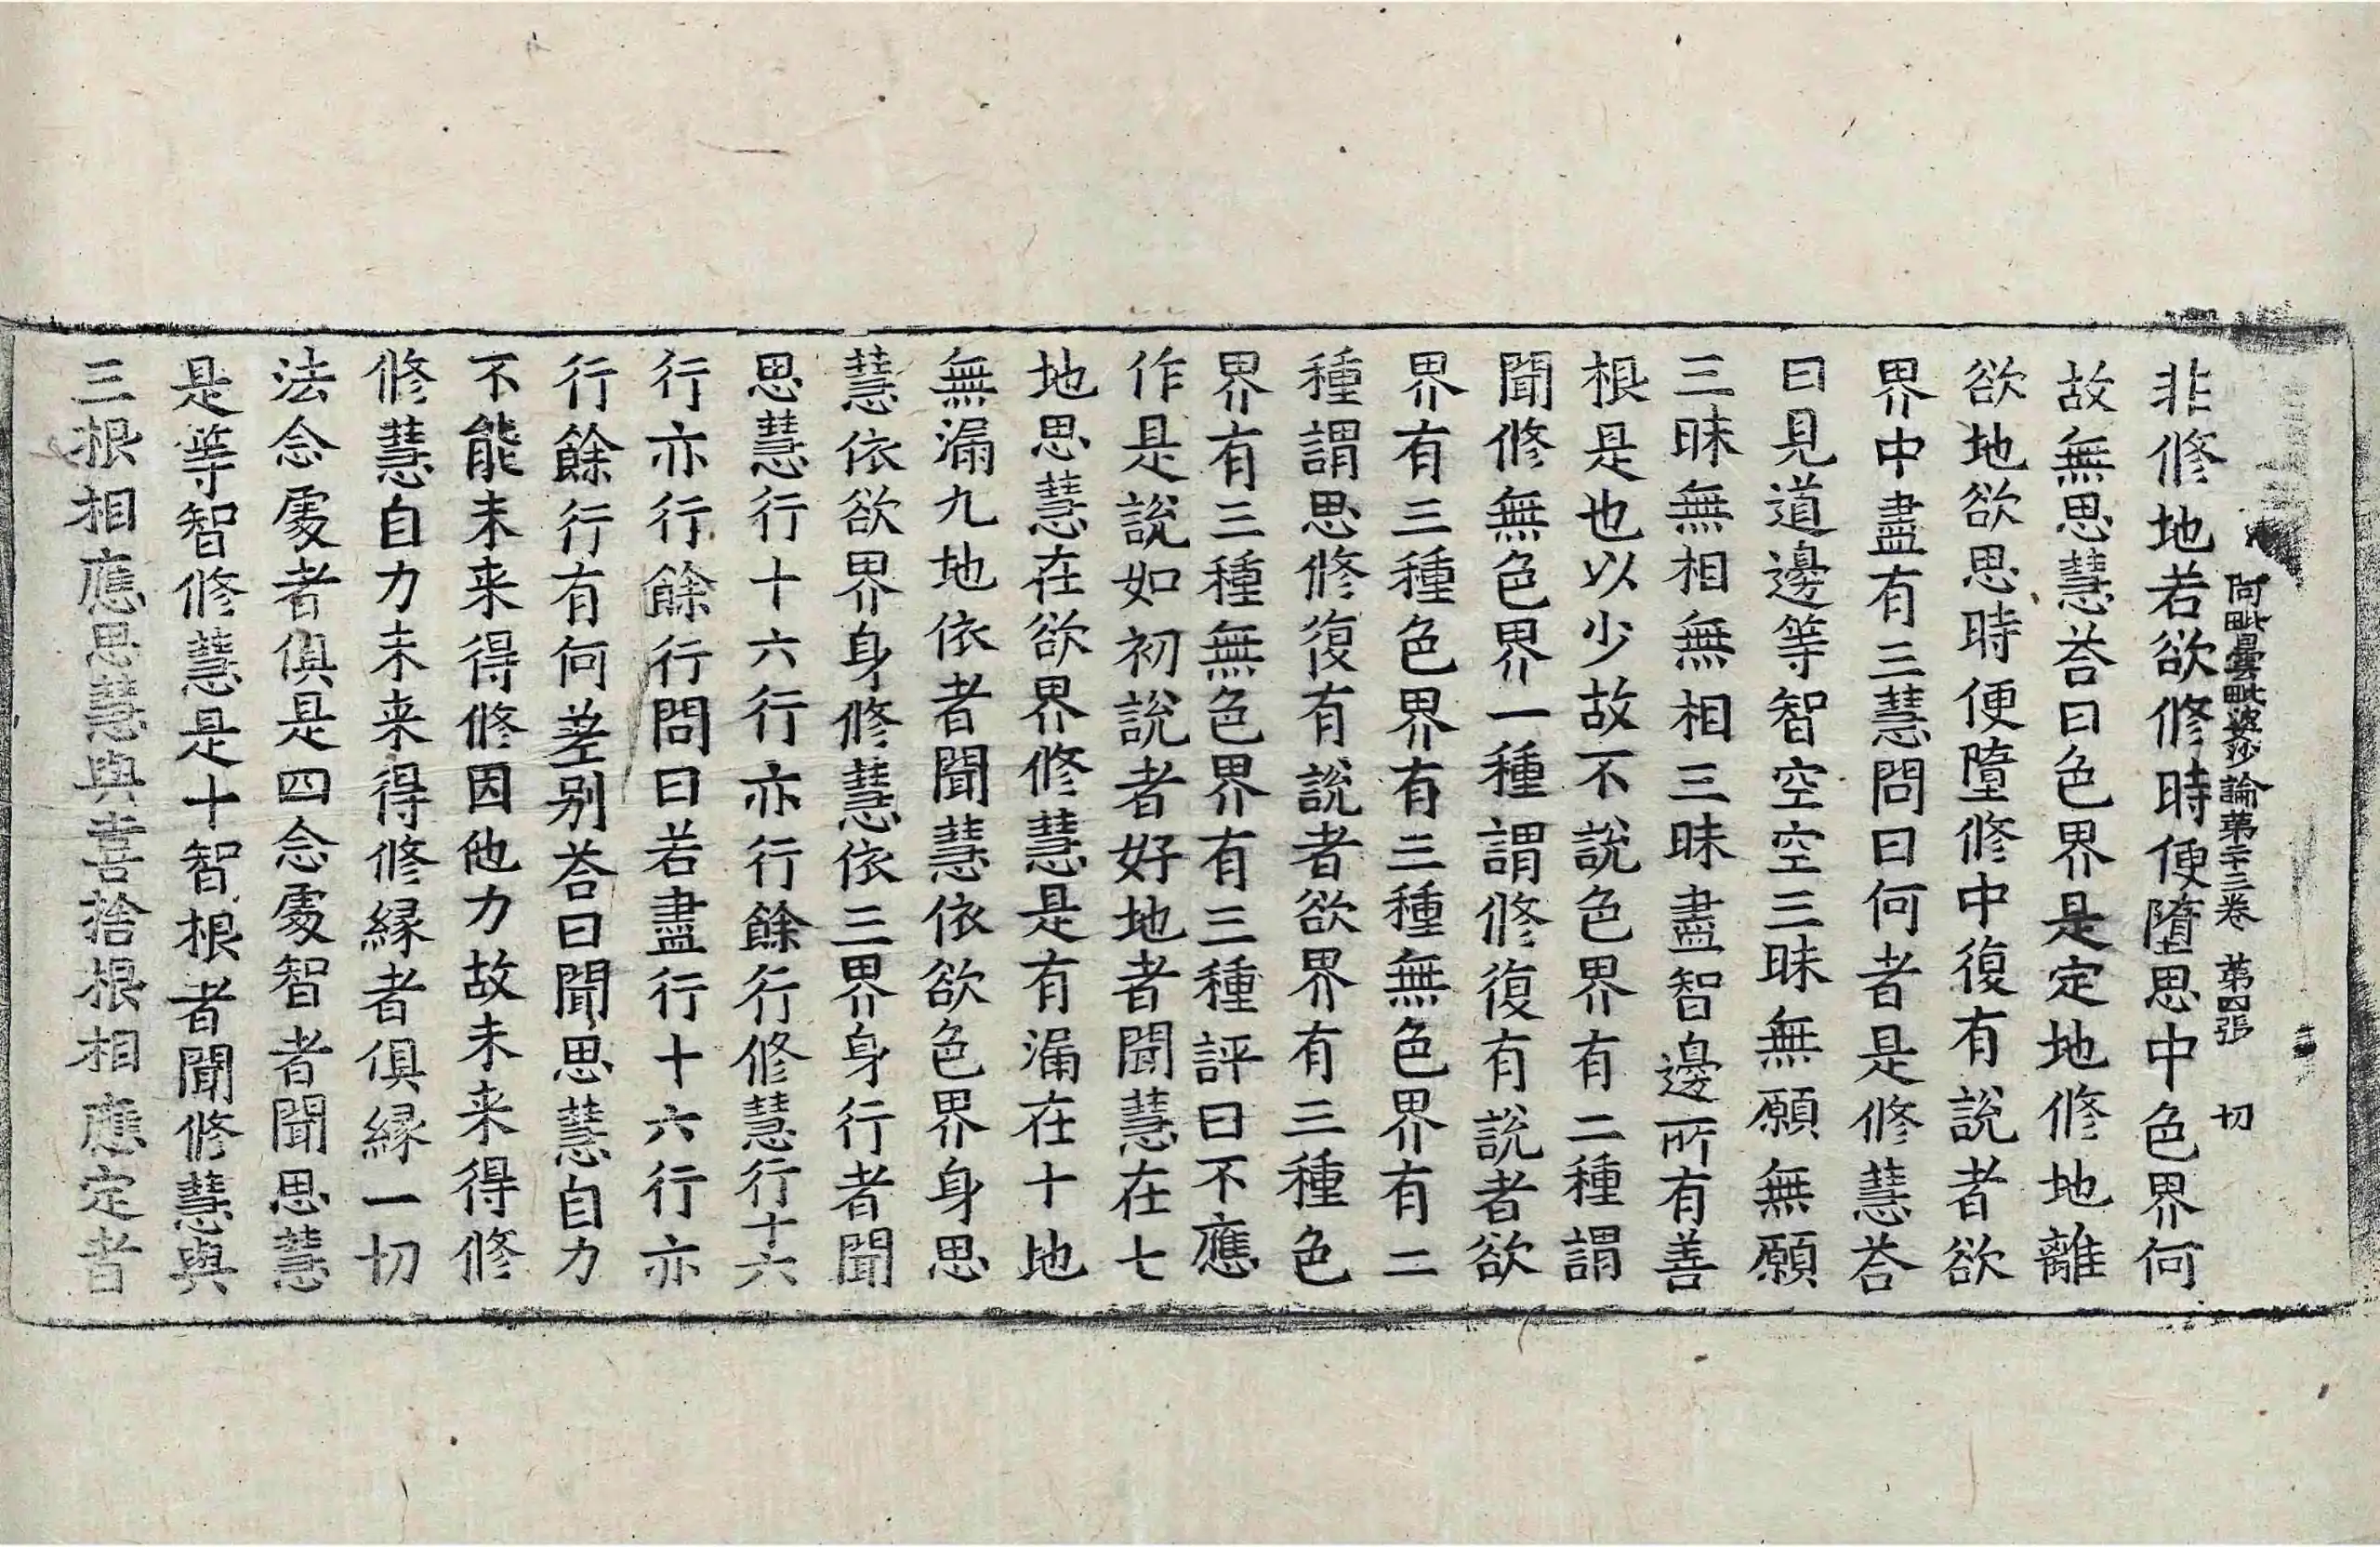 阿毗曇毗婆沙論苐二十三卷 苐四張 切
非修地若欲修時便墮思中色界何
故無思慧荅曰色界是定地修地離
欲地欲思時便墮修中復有說者欲
界中盡有三慧問曰何者是修慧荅
曰見道邊等智空空三昧無願無願
三昧無相無相三昧盡智邊所有善
根是也以少故不說色界有二種謂
聞修無色界一種謂修復有說者欲
界有三種色界有三種無色界有二
種謂思修復有說者欲界有三種色
界有三種無色界有三種評曰不應
作是說如初說者好地者聞慧在七
地思慧在欲界修慧是有漏在十地
無漏九地依者聞慧依欲色界身思
慧依欲界身修慧依三界身行者聞
思慧行十六行亦行餘行修慧行十六
行亦行餘行問曰若盡行十六行亦
行餘行有何差别荅曰聞思慧自力
不能未来得修因他力故未来得修
修慧自力未来得修緣者俱緣一切
法念處者俱是四念處智者聞思慧
是等智修慧是十智根者聞修慧與
三根相應思慧與喜捨根相應定者